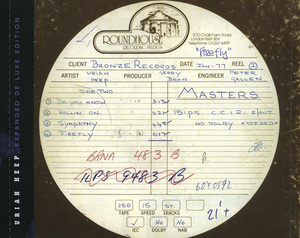 URIAH HEEP EXPANDED DE LUXE EDITION
ROUNDHOUSE
RECORDING STUDIOS
100 Chalk Farm Road,
London NW1 8EH
"Firefly"
CLIENT BRONZE RECORDS DATE JAN-77 REEL 2
ARTIST URIAH HEEP GERRY BRON ENGINEER PETER GALLEN
SIDE TWO MASTERS
① DO YOU KNOW
② ROLLIN ON 15 i.p.s. C.C.I.R.
③ SYMPATHY NO DOLBY *STEREO*
④ FIREFLY
BRNA 483 B
ILPS 9483 B
250 15 ST.
TAPE SPEED TRACKS
✓ No No
IEC DOLBY NAB
21'+